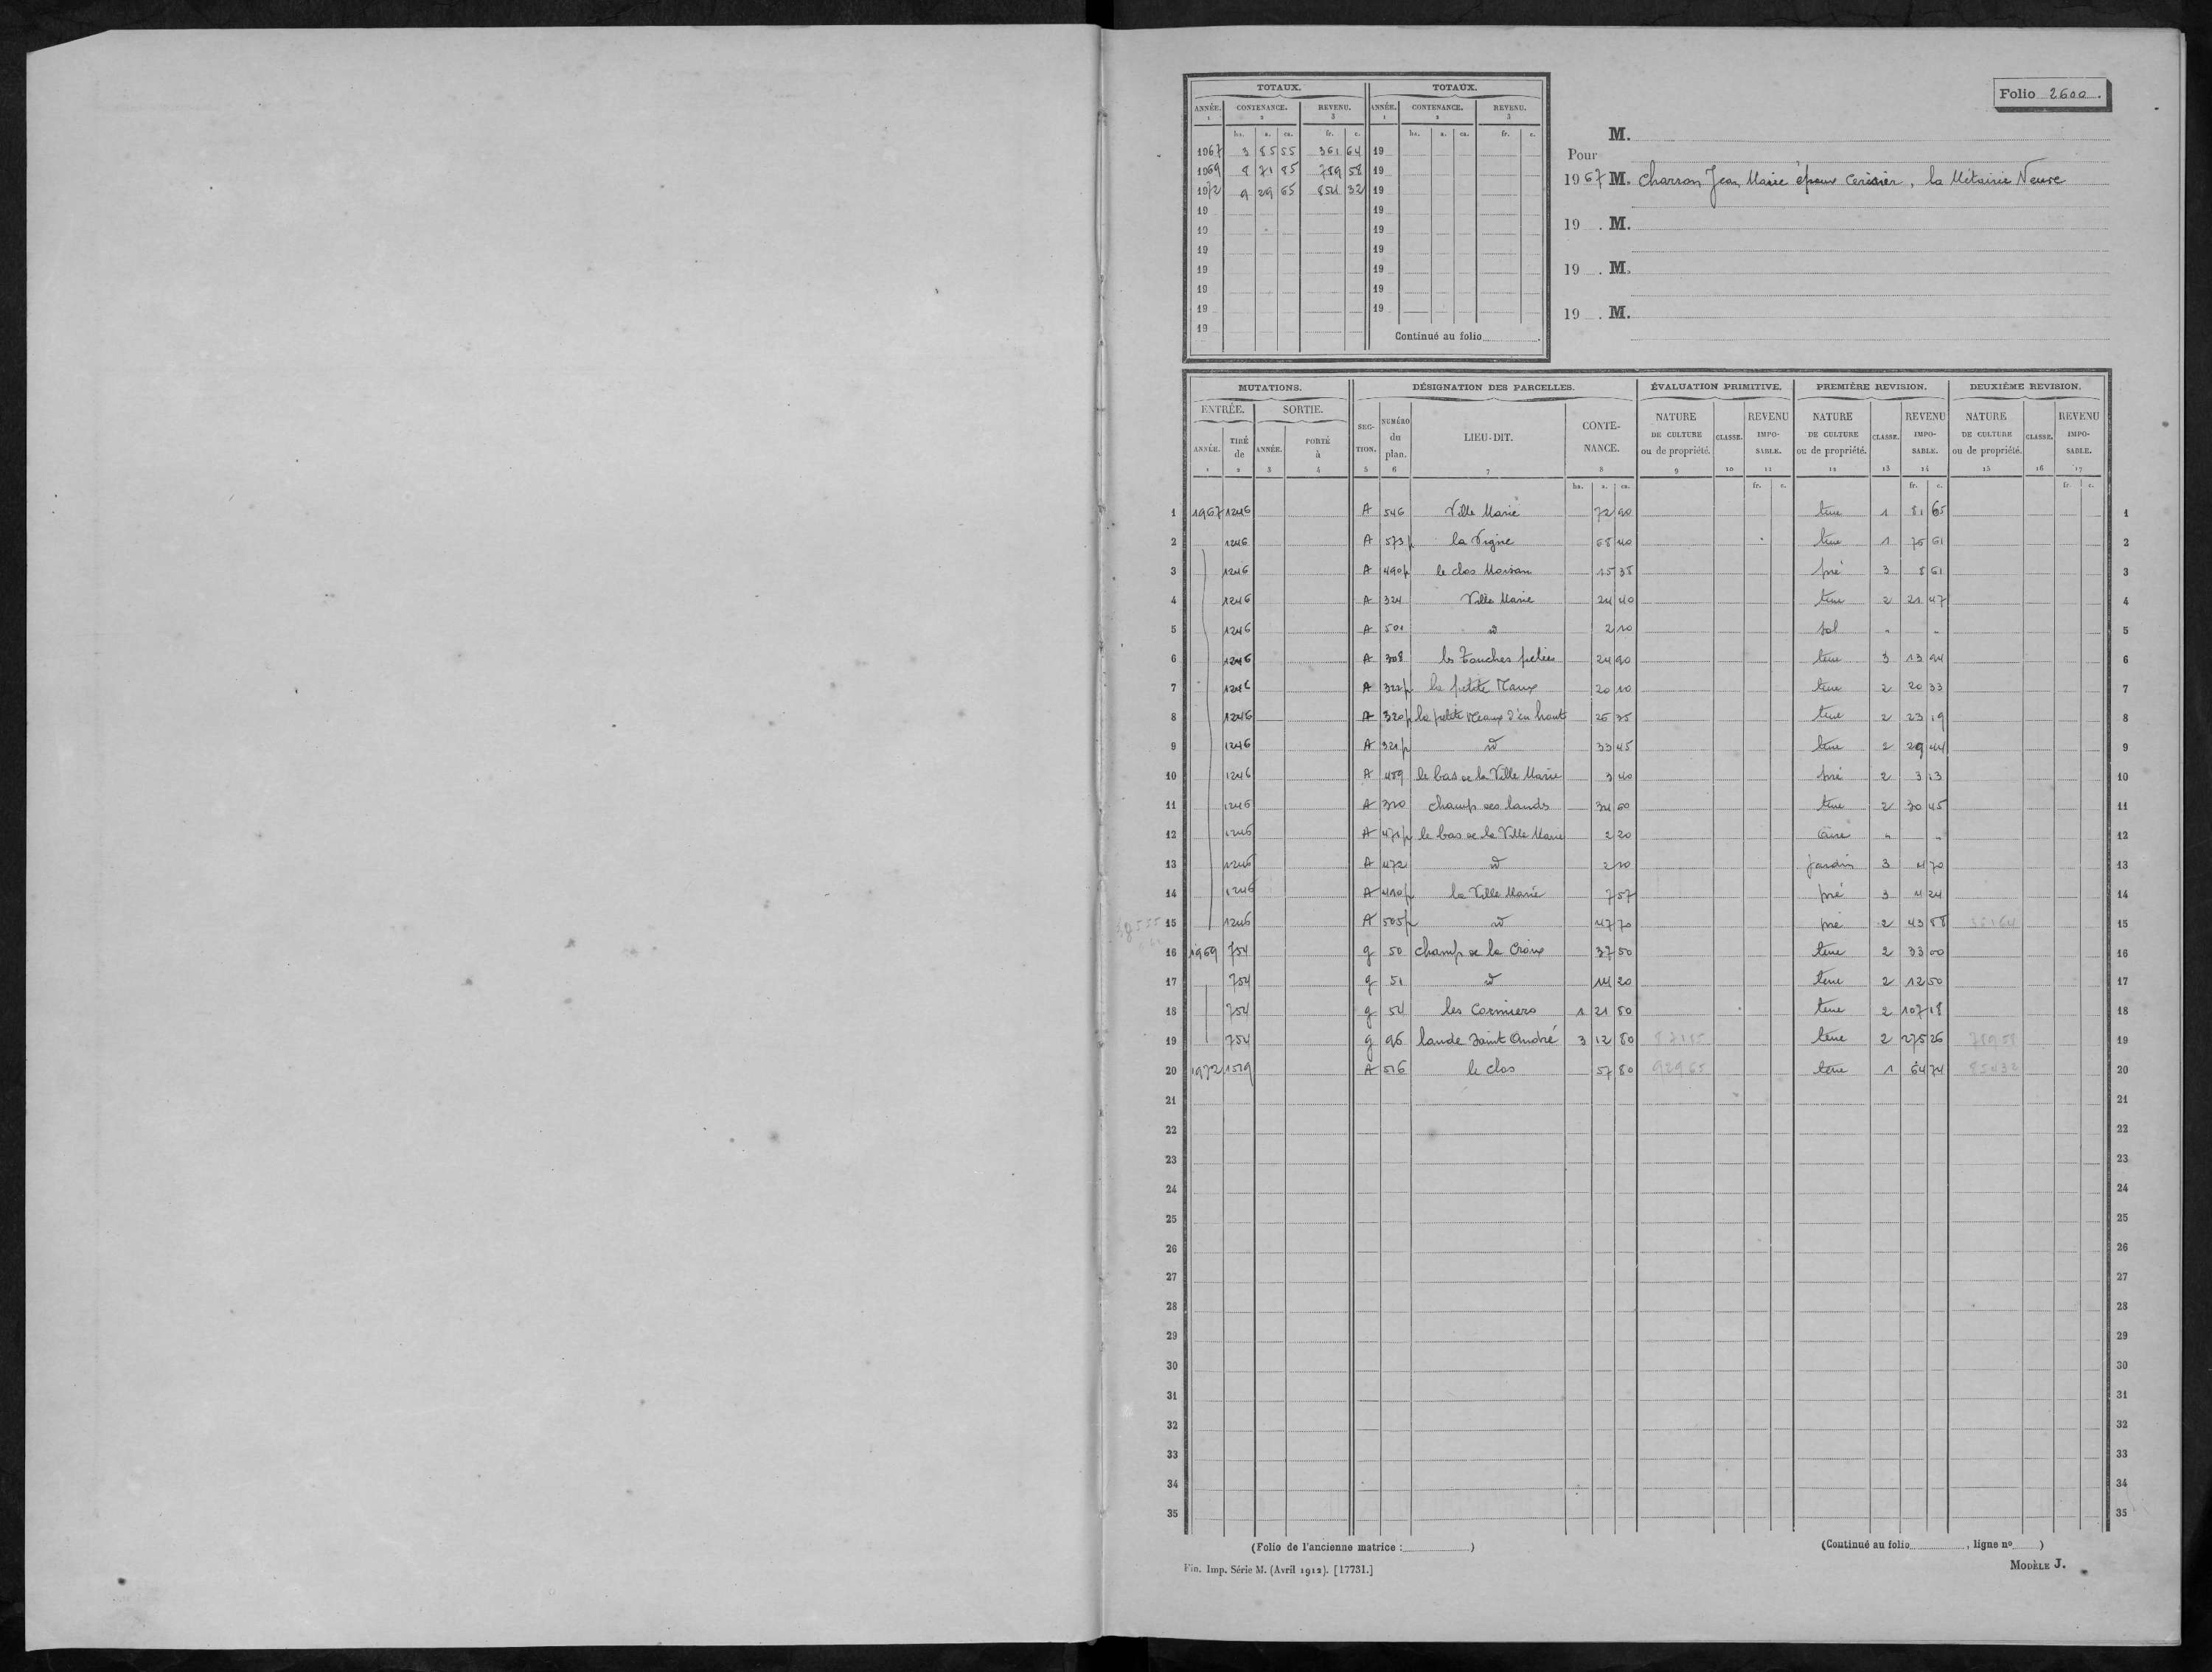 Folio 2600.
TOTAUX. TOTAUX.
ANNÉE. CONTENANCE. REVENU. ANNÉE. CONTENANCE. REVENU.
1 2 3 1 2 3
ha. a. ca. fr. c. ha. a. ca. fr. c.
1967 3 85 55 361 64 19
1969 8 71 85 789 58 19
1972 9 29 65 854 32 19
19 19
19 19
19 19
19 19
19 19
19 19
19 Continué au folio
M.
Pour
1967 M. Charron Jean Marie époux Cerisier, la Métairie Neuve
19 . M.
19 . M.
19 . M.
MUTATIONS. DÉSIGNATION DES PARCELLES. ÉVALUATION PRIMITIVE. PREMIÈRE REVISION. DEUXIÈME REVISION.
ENTRÉE. SORTIE. SEC-TION. NUMÉRO du plan. LIEU-DIT. CONTE-NANCE. NATURE DE CULTURE ou de propriété. CLASSE. REVENU IMPO-SABLE. NATURE DE CULTURE ou de propriété. CLASSE. REVENU IMPO-SABLE. NATURE DE CULTURE ou de propriété. CLASSE. REVENU IMPO-SABLE.
ANNÉE. TIRÉ de ANNÉE. PORTÉ à
1 2 3 4 5 6 7 8 9 10 11 12 13 14 15 16 17
ha. a. ca. fr. c. fr. c. fr. c.
1 1967 1246 A 546 Ville Marie 72 90 terre 1 81 65 1
2 1246 A 573p la Vigne 68 40 terre 1 76 61 2
3 1246 A 490p le clos 15 38 pré 3 8 61 3
4 1246 A 324 Ville Marie 24 40 terre 2 21 47 4
5 1246 A 501 d° 2 10 sol " " 5
6 1246 A 308 les Touches 24 90 terre 3 13 94 6
7 1246 A 322p la petite 20 10 terre 2 20 33 7
8 1246 A 320p la petite d'en haut 26 35 terre 2 23 19 8
9 1246 A 321p d° 33 45 terre 2 29 44 9
10 1246 A 459 le bas de la Ville Marie 3 40 pré 2 3 13 10
11 1246 A 310 champ des landes 34 60 terre 2 30 45 11
12 1246 A 471p le bas de la Ville Marie 2 20 aire " " 12
13 1246 A 472 d° 2 10 jardin 3 4 70 13
14 1246 A 410p la Ville Marie 7 57 pré 3 4 24 14
38555 15 1246 A 505p d° 47 70 pré 2 43 88 36164 15
16 1969 754 g 50 champ de la Croix 37 50 terre 2 33 00 16
17 754 g 51 d° 14 20 terre 2 12 50 17
18 754 g 54 les Cormiers 1 21 80 terre 2 107 18 18
19 754 g 96 lande Saint André 3 12 80 87185 terre 2 275 26 78958 19
20 1972 1529 A 516 le clos 57 80 92965 terre 1 64 74 85432 20
21 21
22 22
23 23
24 24
25 25
26 26
27 27
28 28
29 29
30 30
31 31
32 32
33 33
34 34
35 35
(Folio de l'ancienne matrice : ) (Continué au folio , ligne n° )
Fin. Imp. Série M. (Avril 1912). [17731.] MODÈLE J.